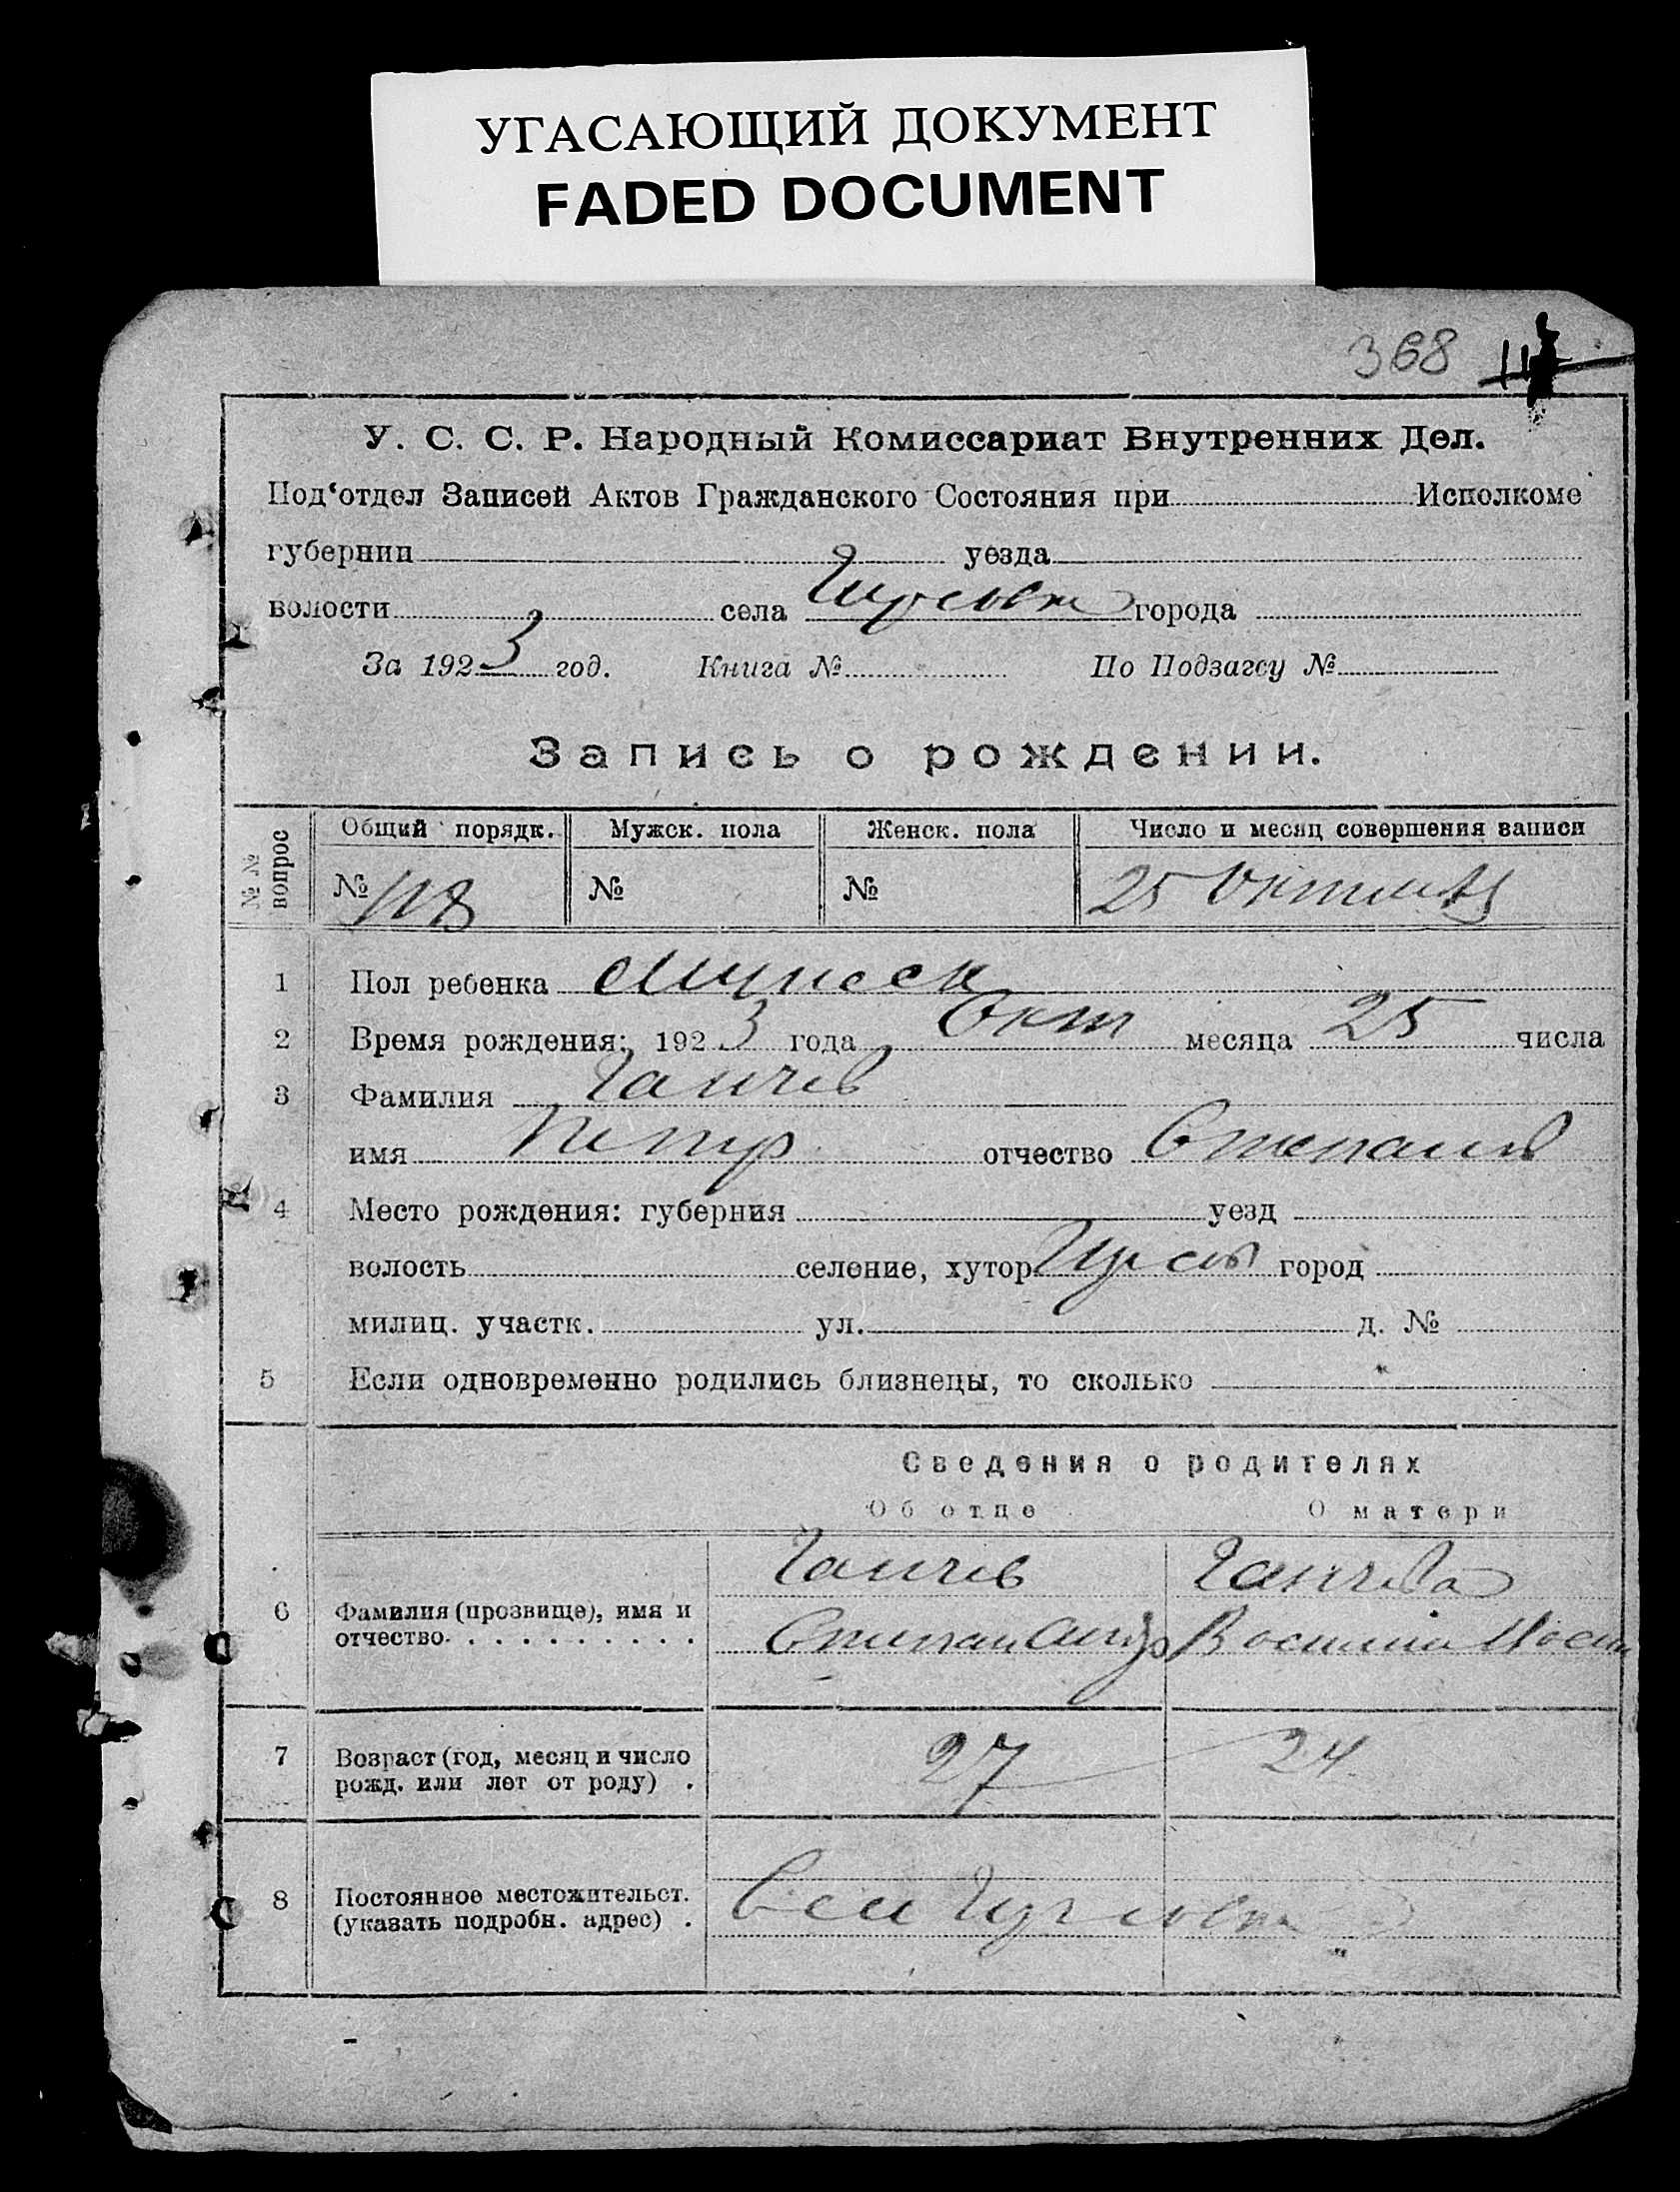 УГАСАЮЩИЙ ДОКУМЕНТ
FADED DOCUMENT
368
У. С. С. Р. Народный Комиссариат Внутренних Дел.
Под‘отдел Записей Актов Гражданского Состояния при Исполкоме
губернии уезда
волости села города
За 1923 год. Книга № По Подзагсу №
Запись о рождении.
№ № вопрос
Общий порядк. Мужск. пола Женск. пола Число и месяц совершения записи
№ 118 № № 25 Октября
1 Пол ребенка Мужеск
2 Время рождения: 1923 года Окт месяца 25 числа
3 Фамилия Ганчев
имя Петр отчество Степанов
4 Место рождения: губерния уезд
волость селение, хутор город
милиц. участк. ул. д. №
5 Если одновременно родились близнецы, то сколько
Сведения о родителях
Об отце О матери
Ганчев Ганчева
6 Фамилия (прозвище), имя и
отчество. Степан Андр
7 Возраст (год, месяц и число
рожд. или лет от роду) . 27 24
8 Постоянное местожительст.
(указать подробн. адрес) .